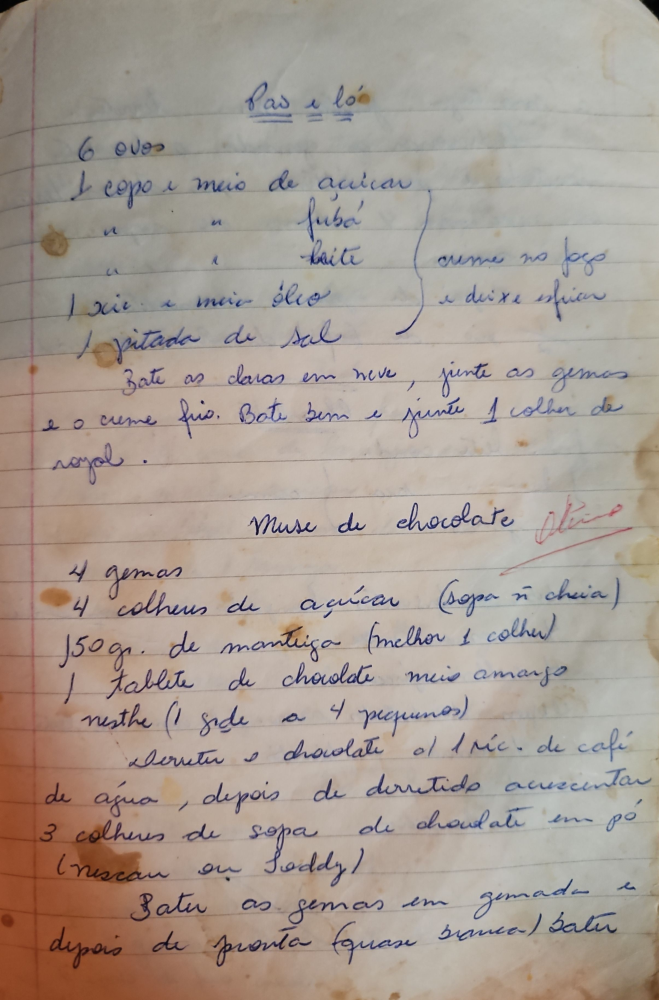 Pao e ló
6 ovos
1 copo e meio de açúcar
" " fubá
" " leite
creme no fogo
1 xic. e meia óleo
e deixe esfriar
1 pitada de sal
Bate as claras em neve, junte as gemas
e o creme frio. Bate bem e junte 1 colher de
royal.
Muse de chocolate Ótimo
4 gemas
4 colheres de açúcar (sopa ñ cheia)
150 gr. de manteiga (melhor 1 colher)
1 tablete de chocolate meio amargo
nesthe (1 gde a 4 pequenos)
Derreter o chocolate c/ 1 xic. de café
de água, depois de derretido acrescentar
3 colheres de sopa de chocolate em pó
(nescau ou Toddy)
Bater as gemas em gemada e
depois de pronta (quase branca) bater